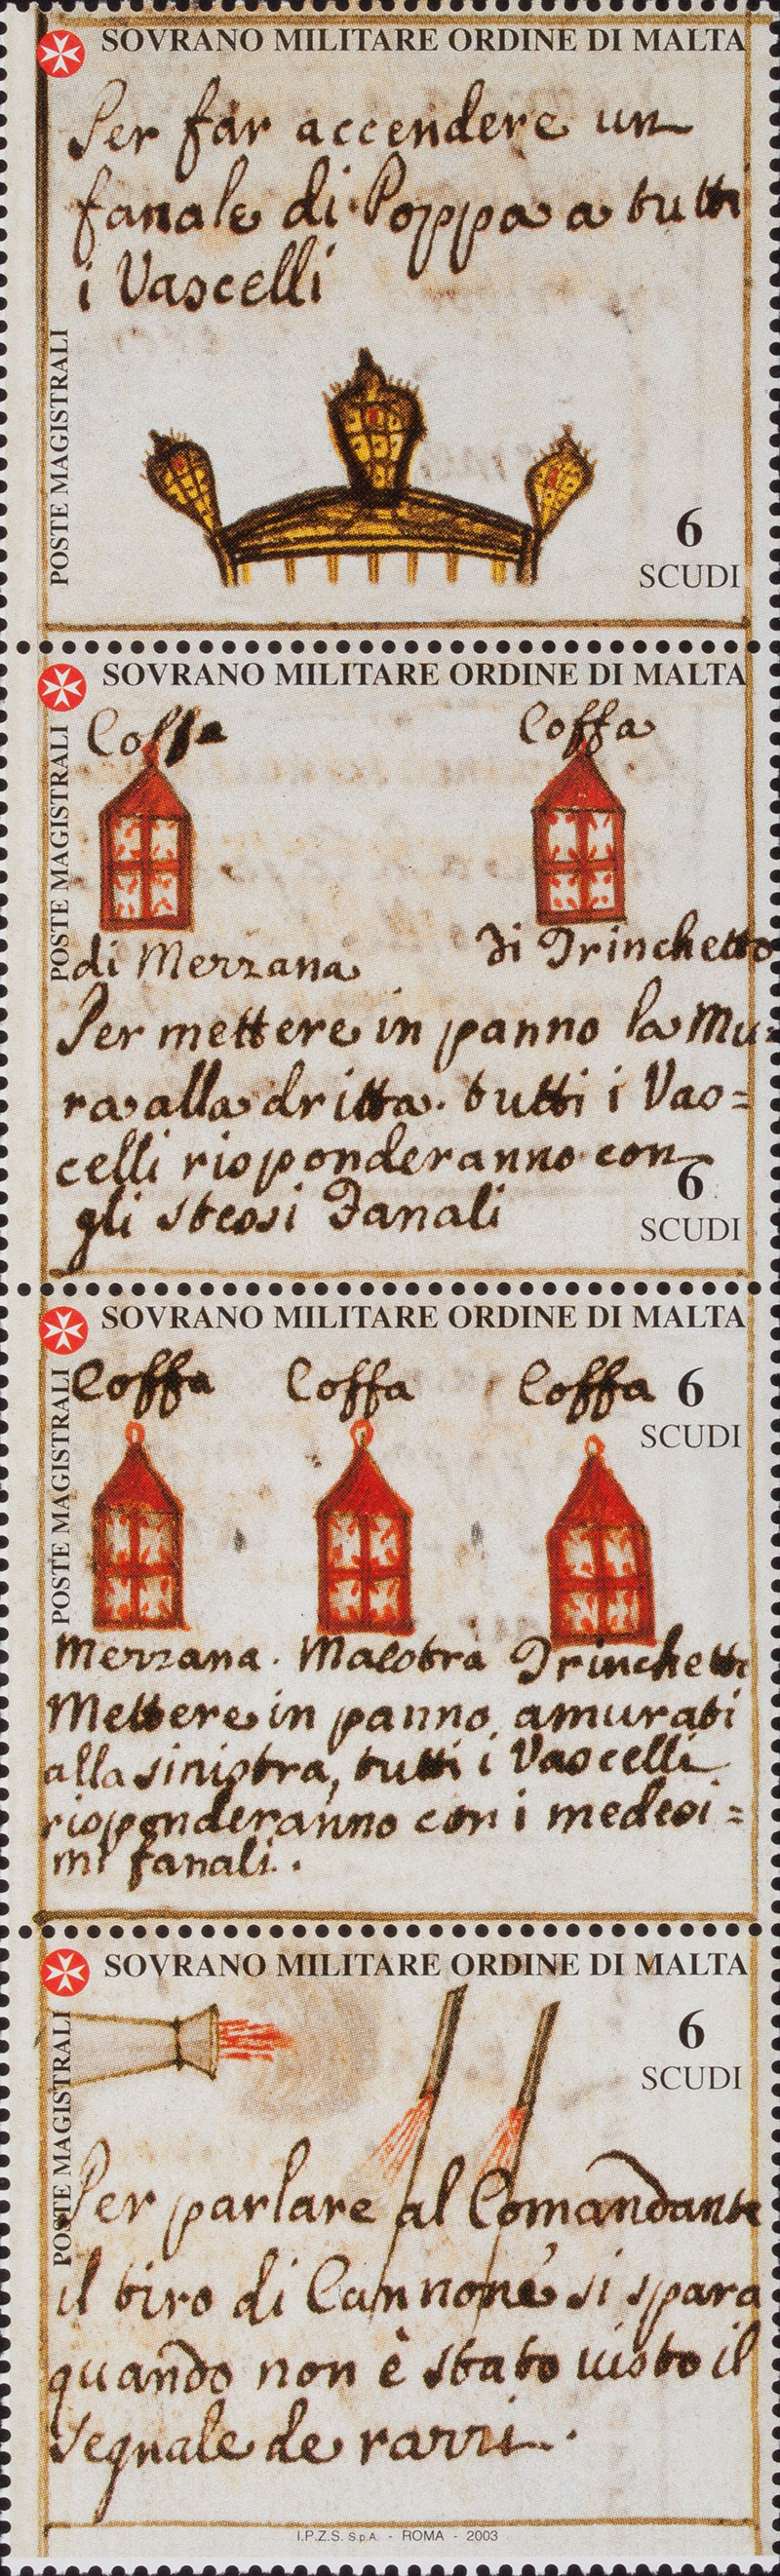 SOVRANO MILITARE ORDINE DI MALTA
Per far accendere un
fanale di Poppa a tutti
i Vascelli
POSTE MAGISTRALI
6
SCUDI
SOVRANO MILITARE ORDINE DI MALTA
Coffa Coffa
POSTE MAGISTRALI
di Mezzana di Trinchetto
Per mettere in panno la Mu=
ra alla dritta. tutti i Vas=
celli risponderanno con
gli stessi Fanali
6
SCUDI
SOVRANO MILITARE ORDINE DI MALTA
Coffa Coffa Coffa
6
SCUDI
POSTE MAGISTRALI
Mezzana. Maestra Trinchetto
Mettere in panno amurati
alla sinistra, tutti i Vascelli
risponderanno con i medesi=
mi fanali.
SOVRANO MILITARE ORDINE DI MALTA
6
SCUDI
POSTE MAGISTRALI
Per parlare al Comandante
il tiro di Cannone si spara
quando non è stato visto il
segnale de razzi.
I.P.Z.S. S.p.A. - ROMA - 2003